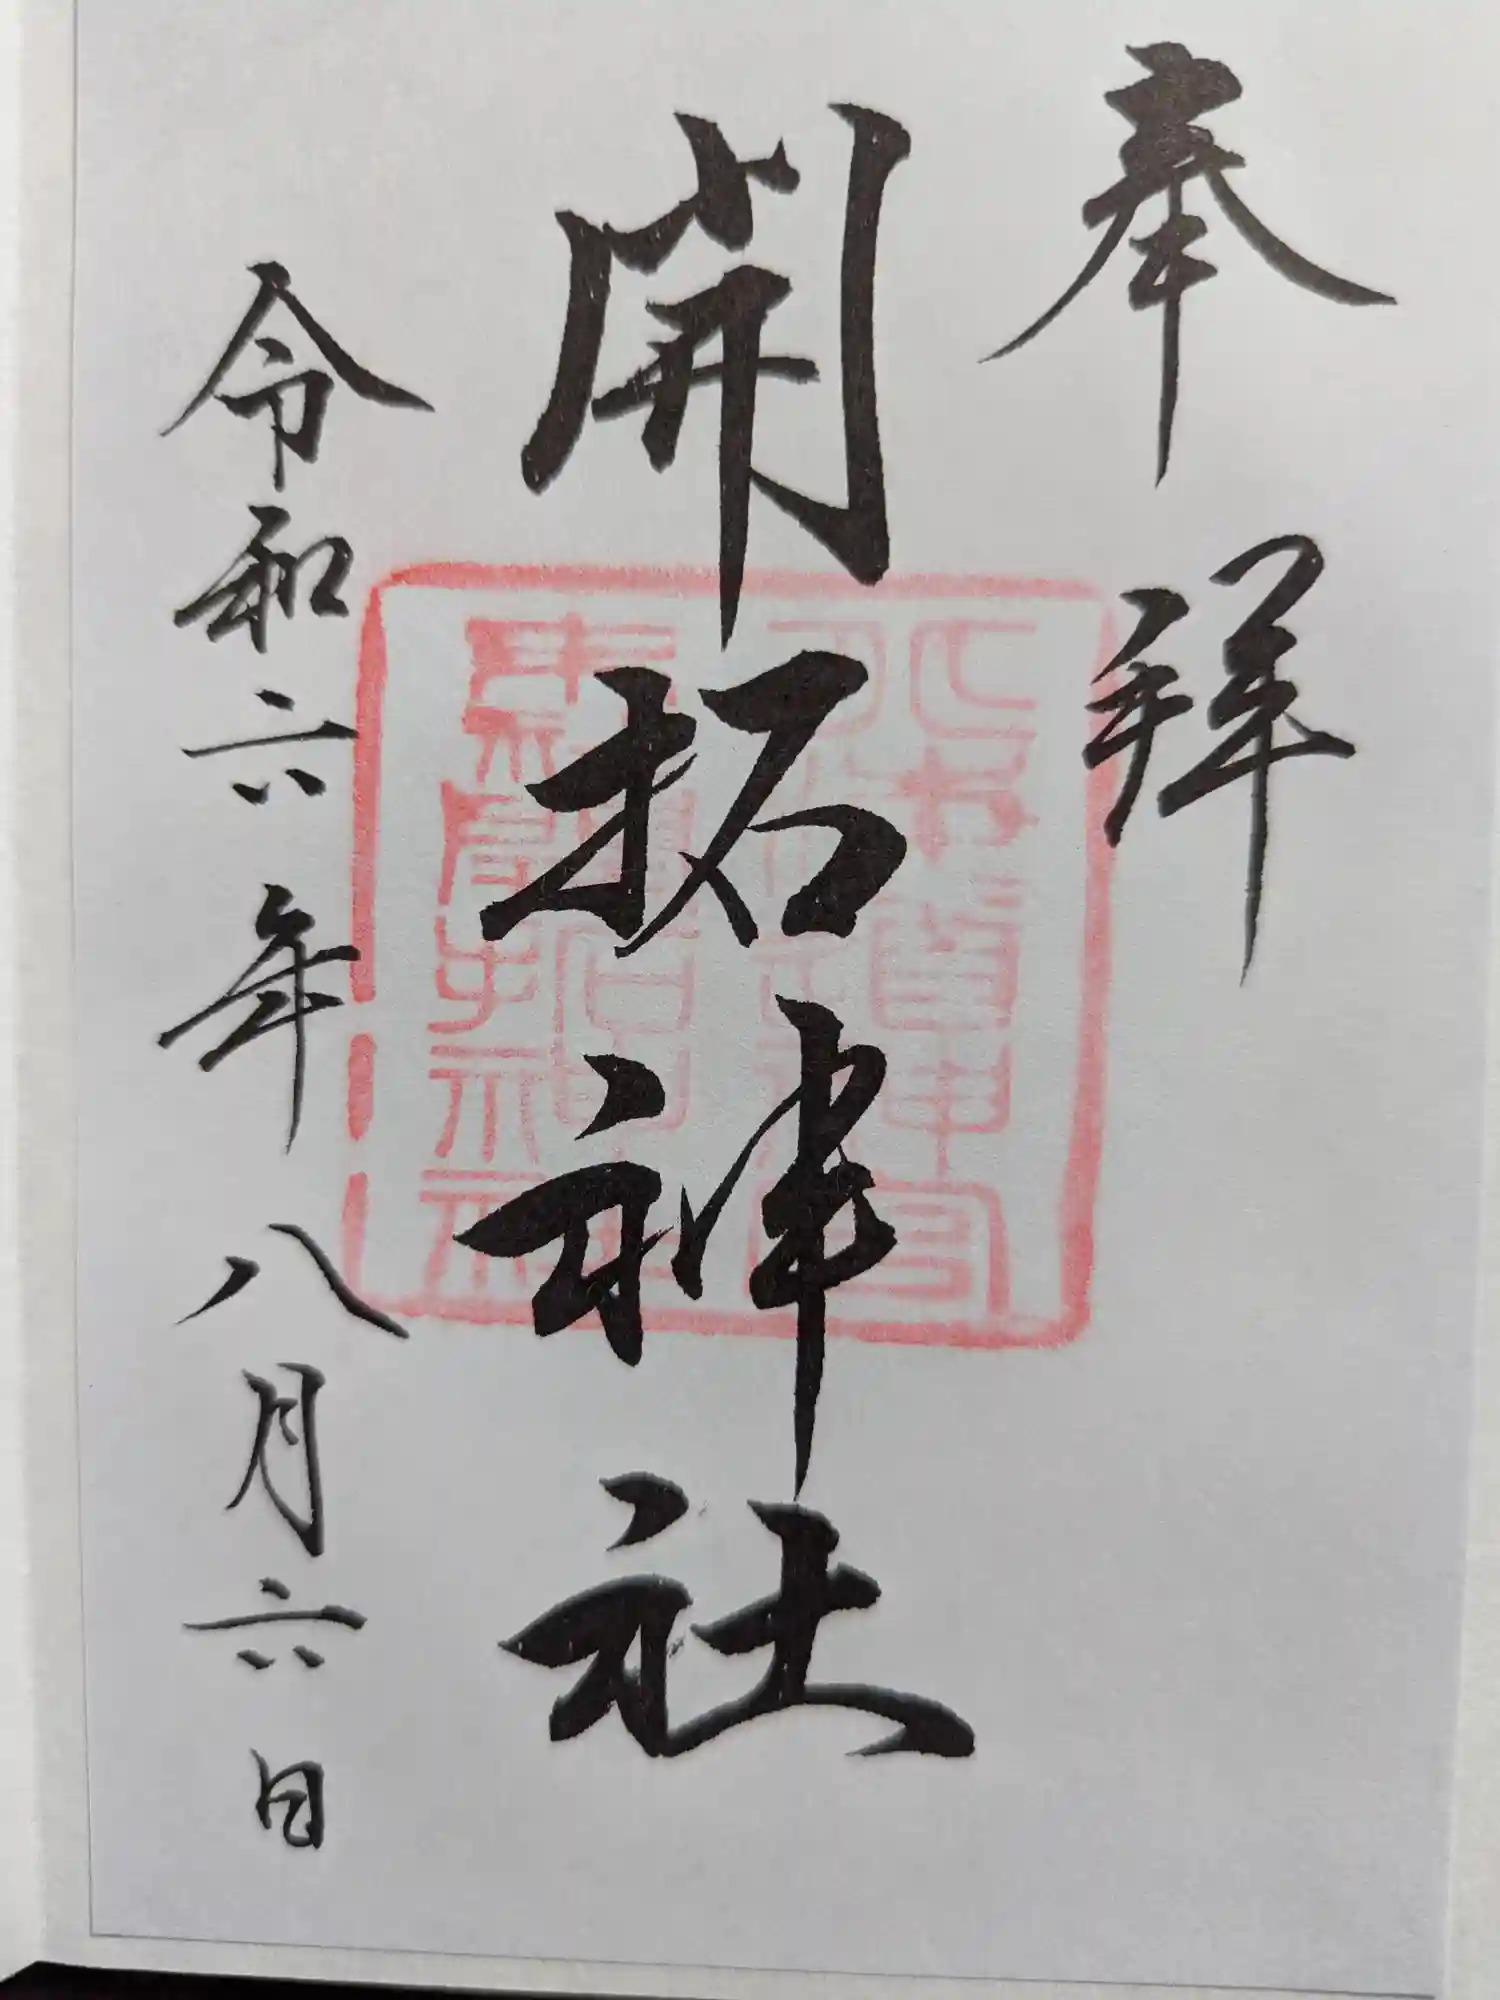 奉拝
開拓神社
令和六年八月六日